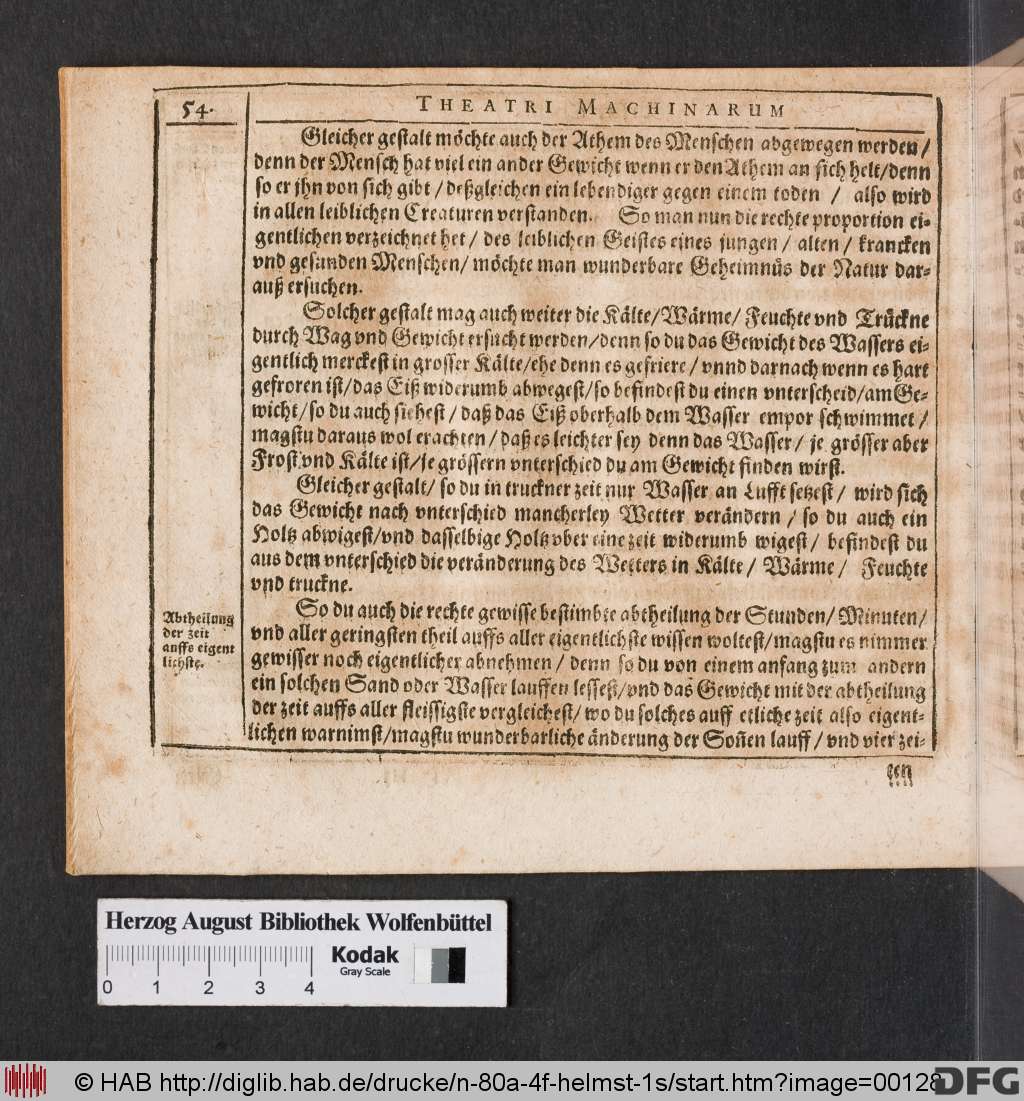 54.
THEATRI MACHINARUM
Gleicher gestalt möchte auch der Athem des Menschen abgewegen werden /
denn der Mensch hat viel ein ander Gewicht wenn er den Athem an sich helt/denn
so er jhn von sich gibt / deßgleichen ein lebendiger gegen einem toden / also wird
in allen leiblichen Creaturen verstanden. So man nun die rechte proportion ei-
gentlichen verzeichnet het / des leiblichen Geistes eines jungen / alten / krancken
vnd gesunden Menschen/ möchte man wunderbare Geheimnüs der Natur dar-
auß ersuchen.
Solcher gestalt mag auch weiter die Kälte/Wärme/ Feuchte vnd Trückne
durch Wag vnd Gewicht ersucht werden/denn so du das Gewicht des Wassers ei-
gentlich merckest in grosser Kälte/ehe denn es gefriere / vnnd darnach wenn es hart
gefroren ist/das Eiß widerumb abwegest/so befindest du einen vnterscheid/am Ge-
wicht/so du auch siehest / daß das Eiß oberhalb dem Wasser empor schwimmet /
magstu daraus wol erachten / daß es leichter sey denn das Wasser/ je grösser aber
Frost vnd Kälte ist/je grössern vnterschied du am Gewicht finden wirst.
Gleicher gestalt/ so du in truckner zeit nur Wasser an Lufft setzest / wird sich
das Gewicht nach vnterschied mancherley Wetter verändern / so du auch ein
Holtz abwigest/vnd dasselbige Holtz vber eine zeit widerumb wigest/ befindest du
aus dem vnterschied die veränderung des Wetters in Kälte / Wärme / Feuchte
vnd truckne.
So du auch die rechte gewisse bestimbte abtheilung der Stunden/ Minuten/
vnd aller geringsten theil auffs aller eigentlichste wissen woltest/magstu es nimmer
gewisser noch eigentlicher abnehmen / denn so du von einem anfang zum andern
ein solchen Sand oder Wasser lauffen lessest/vnd das Gewicht mit der abtheilung
der zeit auffs aller fleissigste vergleichest/ wo du solches auff etliche zeit also eigent-
lichen warnimst/magstu wunderbarliche änderung der Soñen lauff / vnd vier zei-
Abtheilung
der zeit
auffs eigent
lichste.
ten
Herzog August Bibliothek Wolfenbüttel
Kodak
Gray Scale
0 1 2 3 4
© HAB http://diglib.hab.de/drucke/n-80a-4f-helmst-1s/start.htm?image=00128
DFG